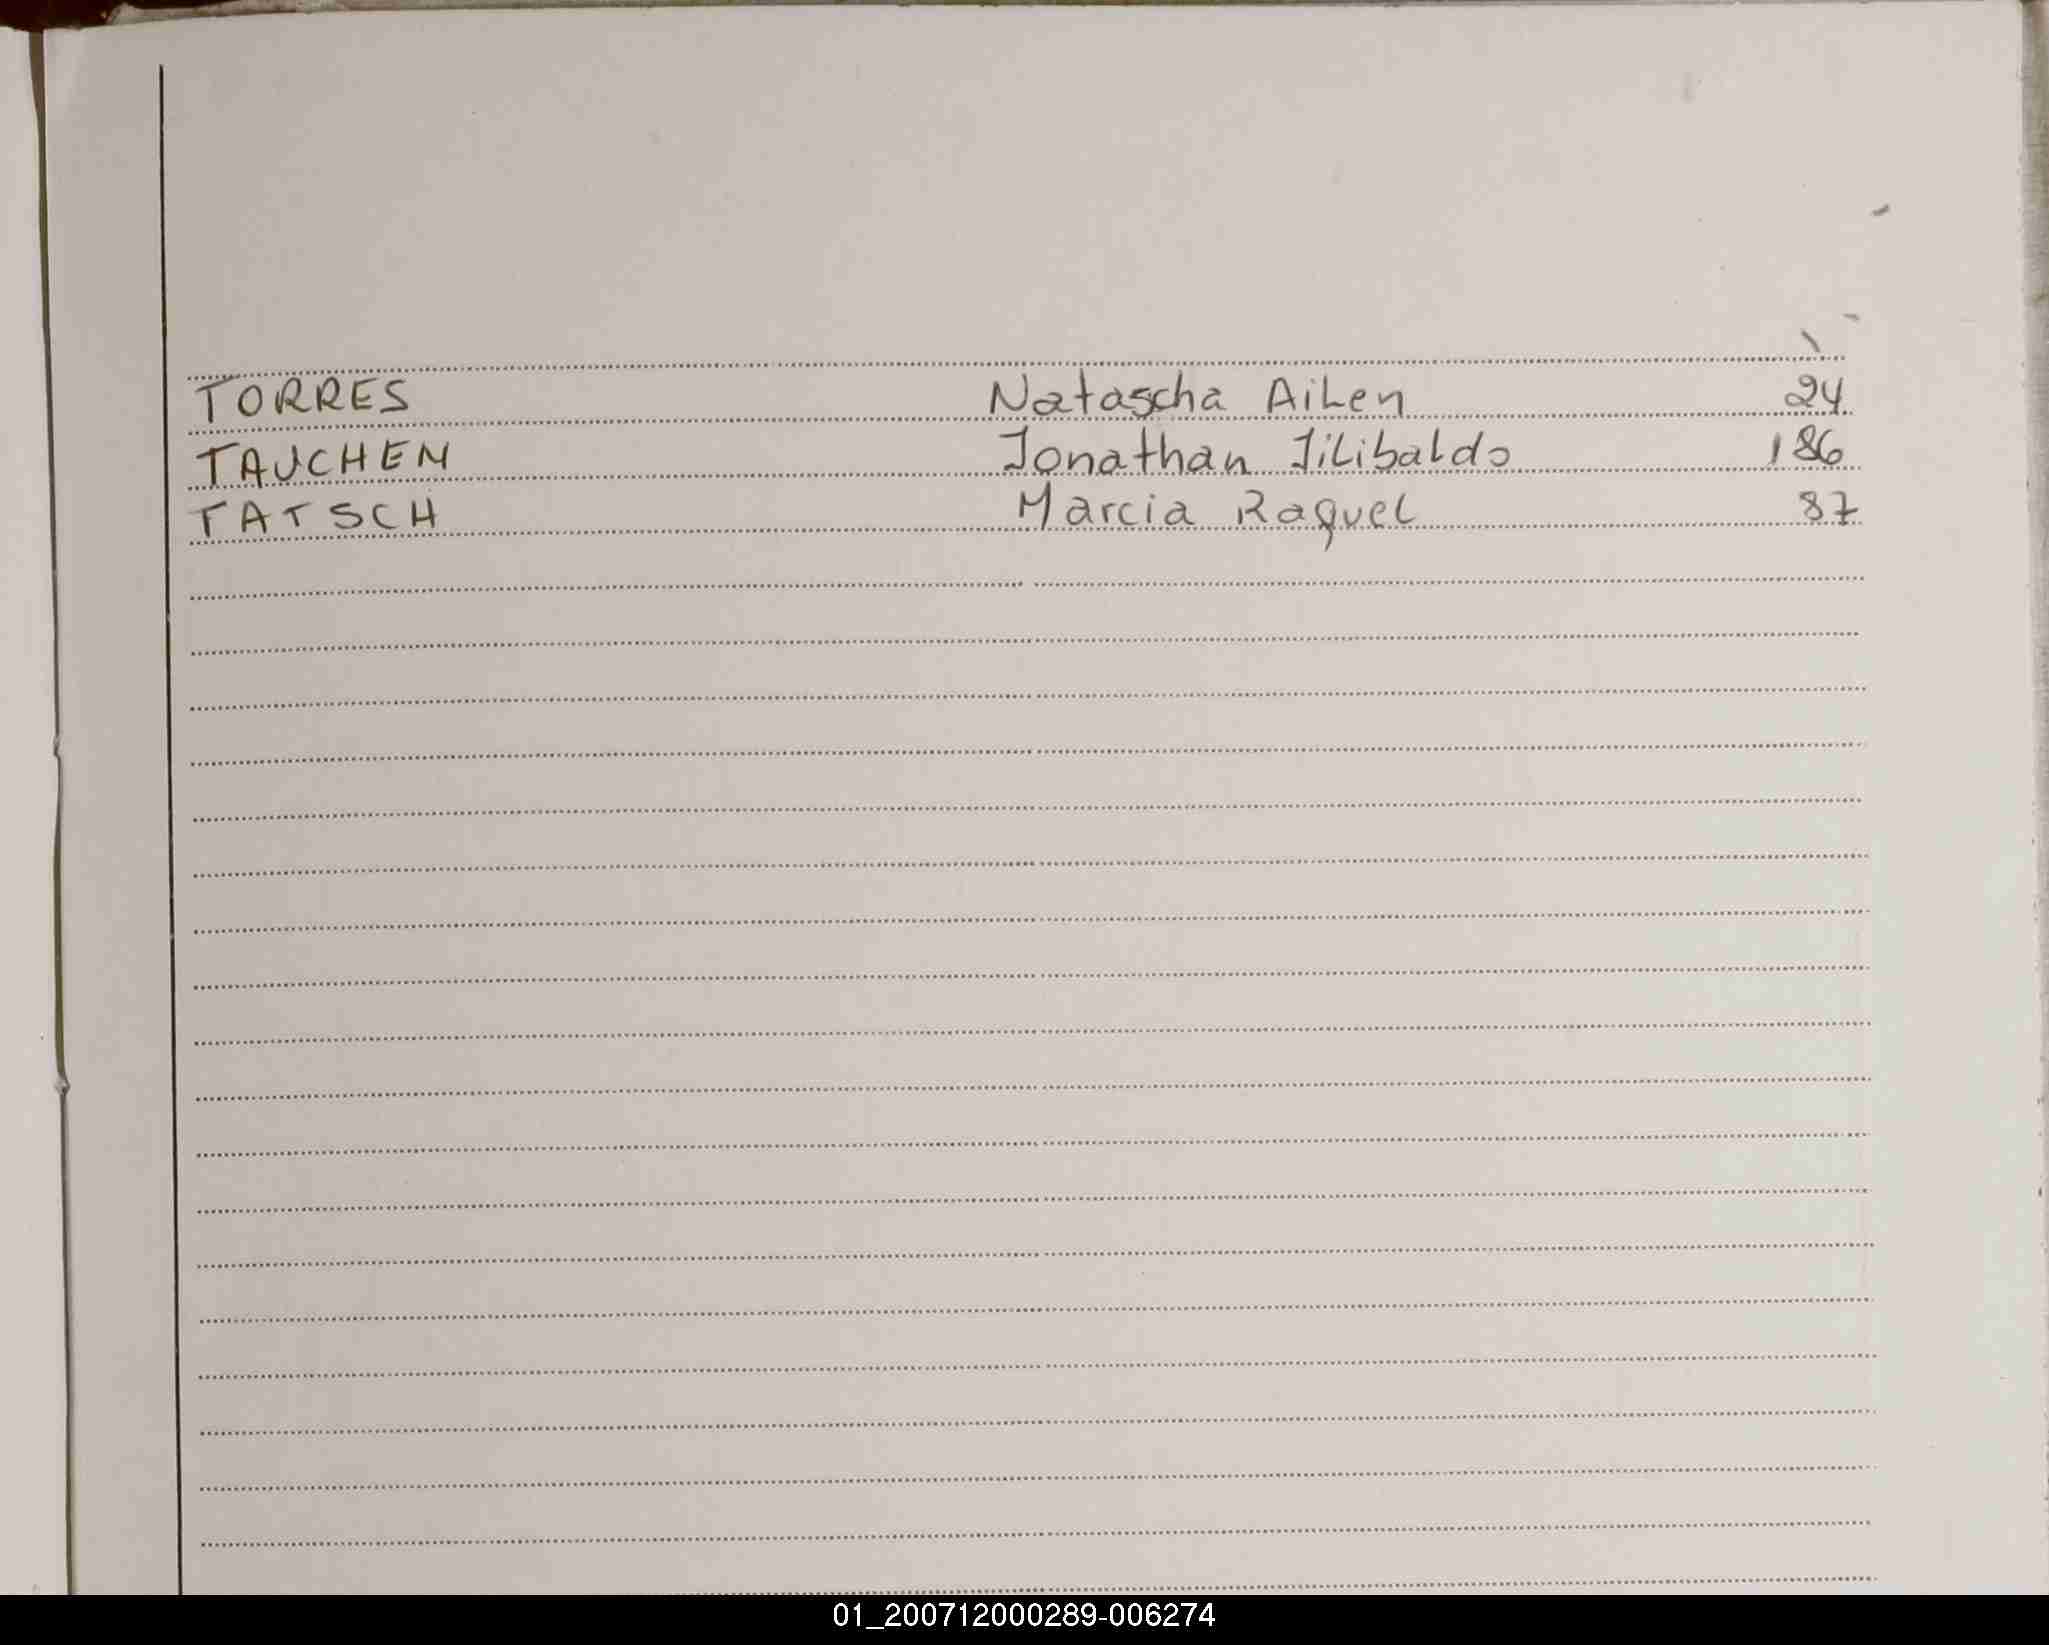 TORRES Natascha Ailen 24
TAUCHEN Jonathan Jilibaldo 186
TATSCH Marcia Raquel 87
01_200712000289-006274